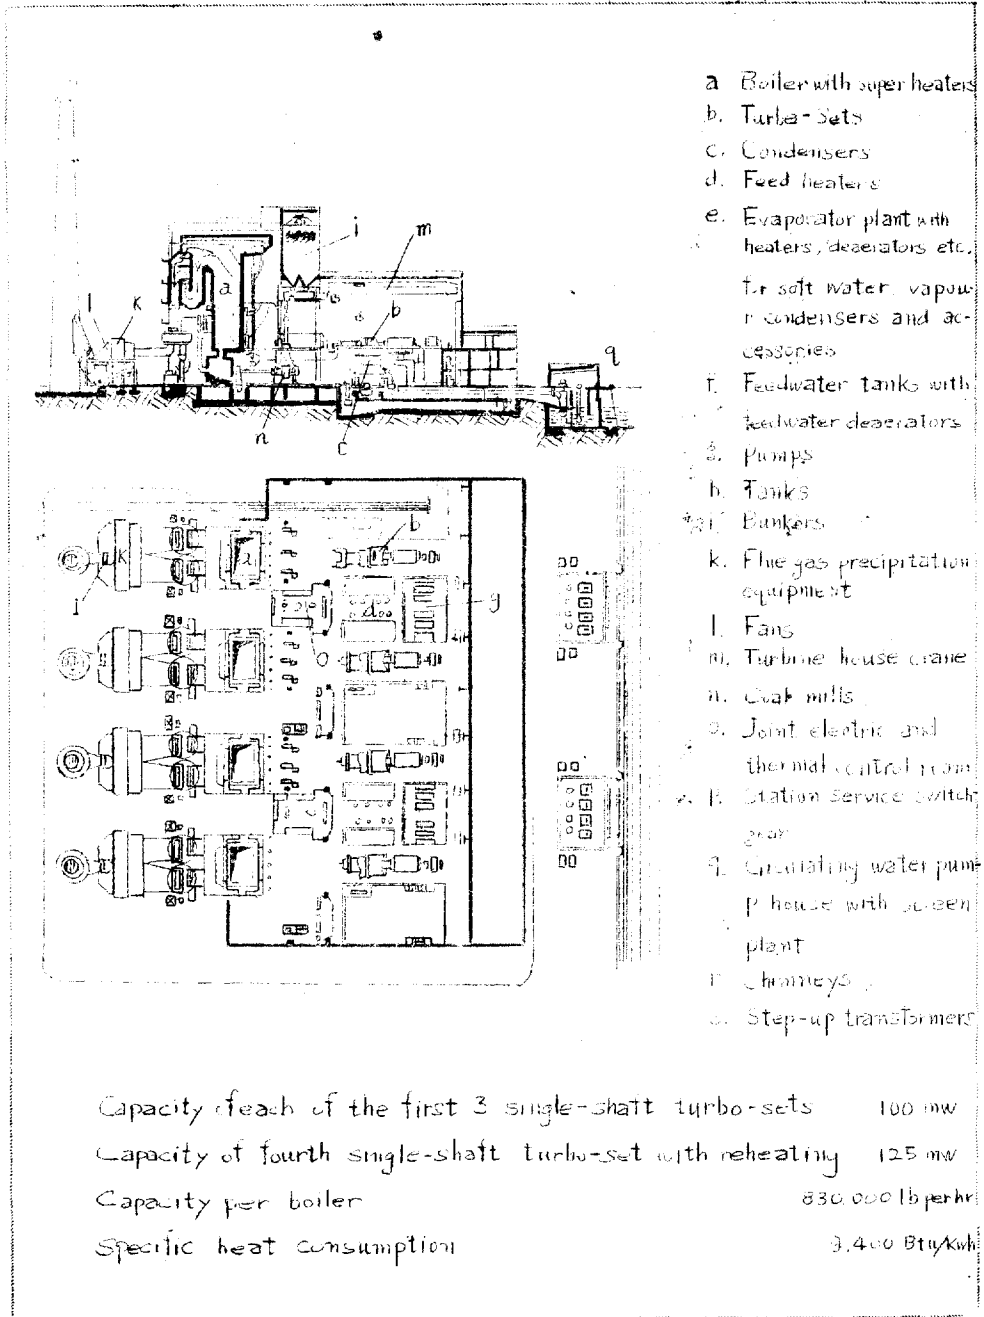 i
m
a
b
l
k
q
n
c
b
a
k
l
d
g
o
a Boiler with super heaters
b. Turbo-Sets
c. Condensers
d. Feed heaters
e. Evaporator plant with
heaters, deaerators etc.
for soft water, vapou-
r condensers and ac-
cessories
f. Feedwater tanks with
feedwater deaerators
g. Pumps
h. Tanks
i. Bunkers
k. Flue gas precipitation
equipment
l. Fans
m. Turbine house crane
n. Coal mills
o. Joint electric and
thermal control room
p. Station service switch
gear
q. Circulating water pum-
p house with screen
plant
r. Chimneys
s. Step-up transformers
Capacity of each of the first 3 single-shaft turbo-sets 100 mw
Capacity of fourth single-shaft turbo-set with reheating 125 mw
Capacity per boiler 830,000 lb per hr
Specific heat consumption 9,400 Btu/Kwh